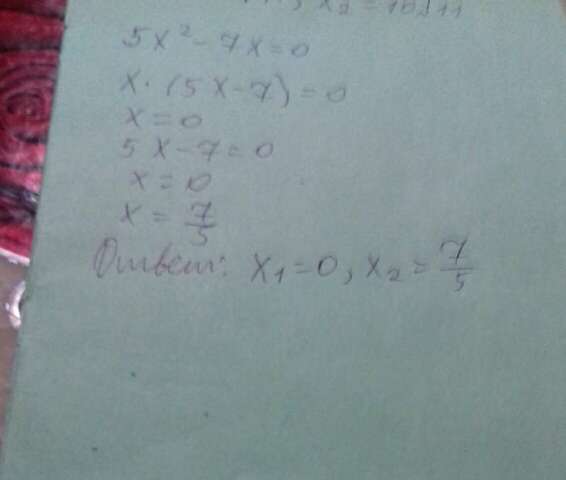 5x² - 7x = 0
x · (5x - 7) = 0
x = 0
5x - 7 = 0
x = 0
x = 7/5
Ответ: x₁ = 0, x₂ = 7/5